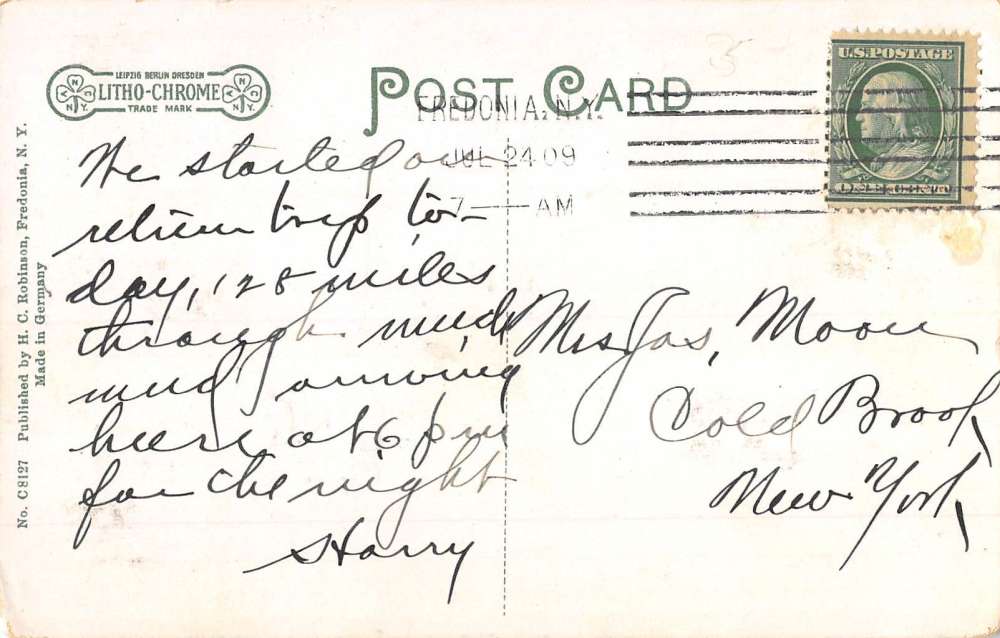 LEIPZIG BERLIN DRESDEN
LITHO-CHROME
TRADE MARK
A N C N.Y.
A N C N.Y.
POST CARD
U.S. POSTAGE
ONE CENT
FREDONIA, N.Y.
JUL 24 09
7 — AM
No. C8127 Published by H. C. Robinson, Fredonia, N. Y.
Made in Germany
We started our
return trip to-
day, 128 miles
through much
mud arriving
here at 6 pm
for the night
Harry
Mrs Jas, Moon
Cold Brook,
New York,